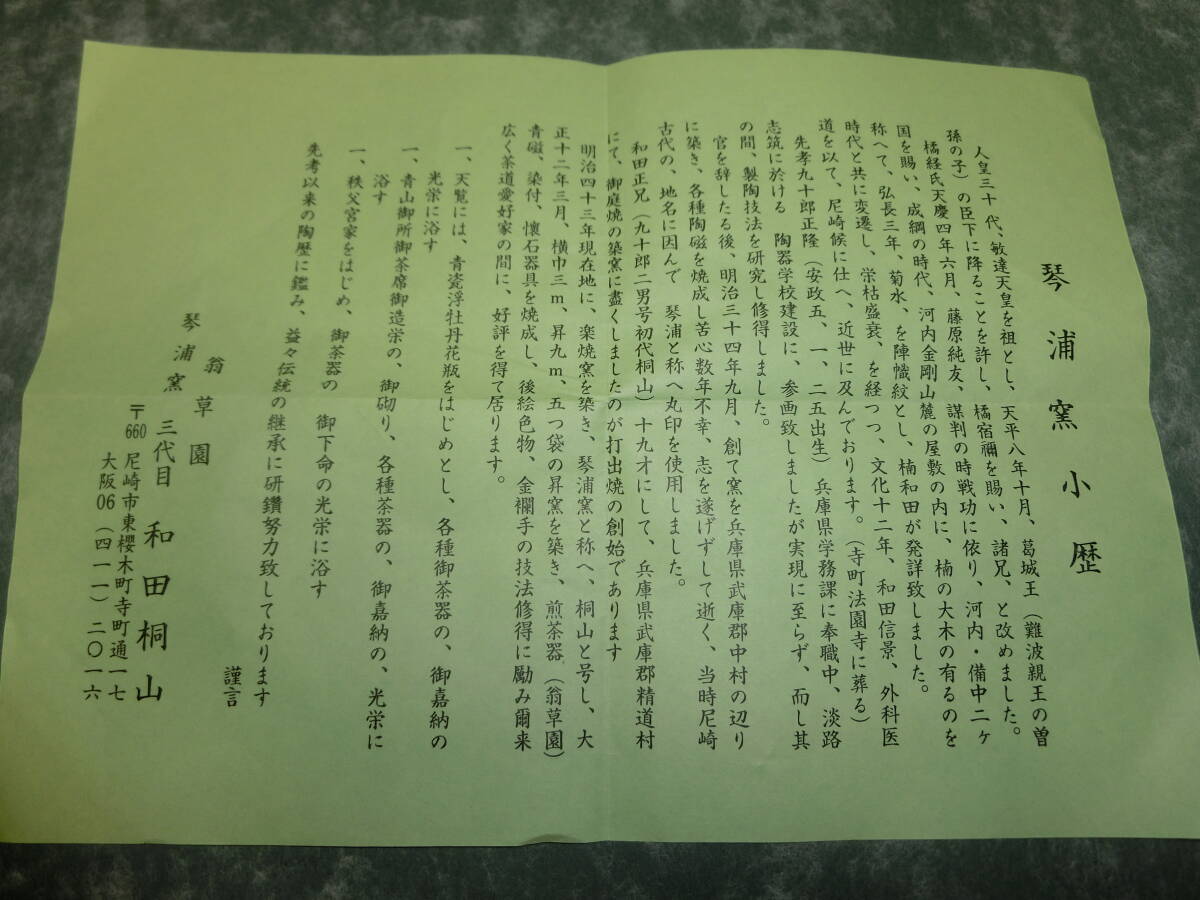 琴浦窯小歴
人皇三十代、敏達天皇を祖とし、天平八年十月、葛城王（難波親王の曽
孫の子）の臣下に降ることを許し、橘宿禰を賜い、諸兄、と改めました。
橘経氏天慶四年六月、藤原純友、謀判の時戦功に依り、河内・備中二ヶ
国を賜い、成綱の時代、河内金剛山麓の屋敷の内に、楠の大木の有るのを
称へて、弘長三年、菊水、を陣幟紋とし、楠和田が発詳致しました。
時代と共に変遷し、栄枯盛衰、を経つつ、文化十二年、和田信景、外科医
道を以て、尼崎候に仕へ、近世に及んでおります。（寺町法園寺に葬る）
先孝九十郎正隆（安政五、一、二五出生）兵庫県学務課に奉職中、淡路
志筑に於ける　陶器学校建設に、参画致しましたが実現に至らず、而し其
の間、製陶技法を研究し修得しました。
官を辞したる後、明治三十四年九月、創て窯を兵庫県武庫郡中村の辺り
に築き、各種陶磁を焼成し苦心数年不幸、志を遂げずして逝く、当時尼崎
古代の、地名に因んで　琴浦と称へ丸印を使用しました。
和田正兄（九十郎二男号初代桐山）十九才にして、兵庫県武庫郡精道村
にて、御庭焼の築窯に盡くしましたのが打出焼の創始であります
明治四十三年現在地に、楽焼窯を築き、琴浦窯と称へ、桐山と号し、大
正十二年三月、横巾三ｍ、昇九ｍ、五つ袋の昇窯を築き、煎茶器（翁草園）
青磁、染付、懐石器具を焼成し、後絵色物、金襴手の技法修得に勵み爾来
広く茶道愛好家の間に、好評を得て居ります。
一、天覧には、青瓷浮牡丹花瓶をはじめとし、各種御茶器の、御嘉納の
光栄に浴す
一、青山御所御茶席御造栄の、御砌り、各種茶器の、御嘉納の、光栄に
浴す
一、秩父宮家をはじめ、御茶器の　御下命の光栄に浴す
先考以来の陶歴に鑑み、益々伝統の継承に研鑽努力致しております
謹言
翁草園
琴浦窯　三代目　和田桐山
〒660　尼崎市東櫻木町寺町通一七
大阪06（四一一）二〇一六